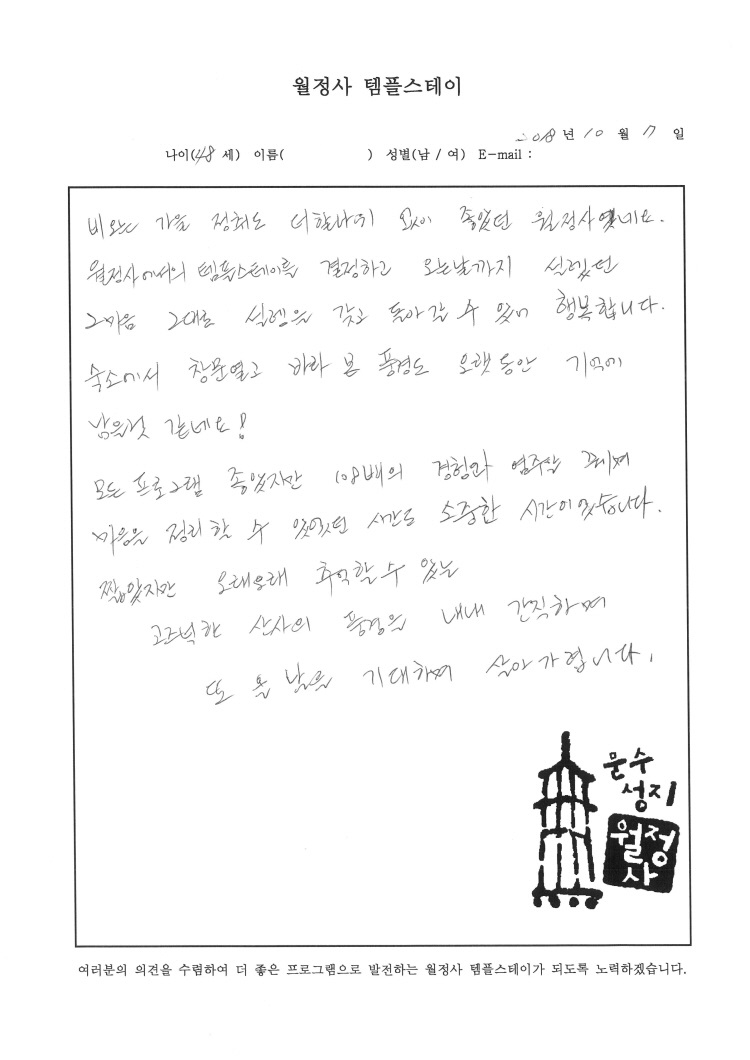 월정사 템플스테이
2018 년 10 월 17 일
나이(48 세) 이름( ) 성별(남 / 여) E-mail :
비오는 가을 정취도 더할나위 없이 좋았던 월정사였네요.
월정사에서의 템플스테이를 결정하고 오는날까지 설렜던
그마음 그대로 설렘을 갖고 돌아갈 수 있어 행복합니다.
숙소에서 창문열고 바라 본 풍경도 오랫동안 기억에
남을것 같네요!
모든 프로그램 좋았지만 108배의 경험과 염주알 꿰며
마음을 정리할 수 있었던 시간도 소중한 시간이었습니다.
짧았지만 오래오래 추억할 수 있는
고즈넉한 산사의 풍경을 내내 간직하며
또 올 날을 기대하며 살아가렵니다.
문수
성지
월정
사
여러분의 의견을 수렴하여 더 좋은 프로그램으로 발전하는 월정사 템플스테이가 되도록 노력하겠습니다.